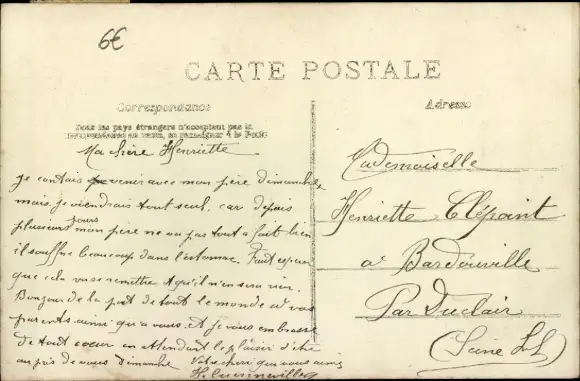 6€
CARTE POSTALE
Correspondance
Tous les pays étrangers n'acceptent pas la
correspondance au verso, se renseigner à la Poste
Adresse
Ma chère Henriette
Je contais venir avec mon père dimanche
mais je viendrais tout seul, car depuis
plusieurs jours mon père ne va pas tout à fait bien
il souffre beaucoup dans l'estomac. Faut espérer
que cela va se remettre et qu'il n'en sera rien.
Bonjour de la part de tout le monde a vos
parents ainsi qu'a vous, et je vous embrasse
de tout cœur en attendant le plaisir d'être
au près de vous dimanche Votre cheri qui vous aime
H.
Mademoiselle
Henriette Clépoint
a Bardouville
Par Duclair
(Seine Inf)